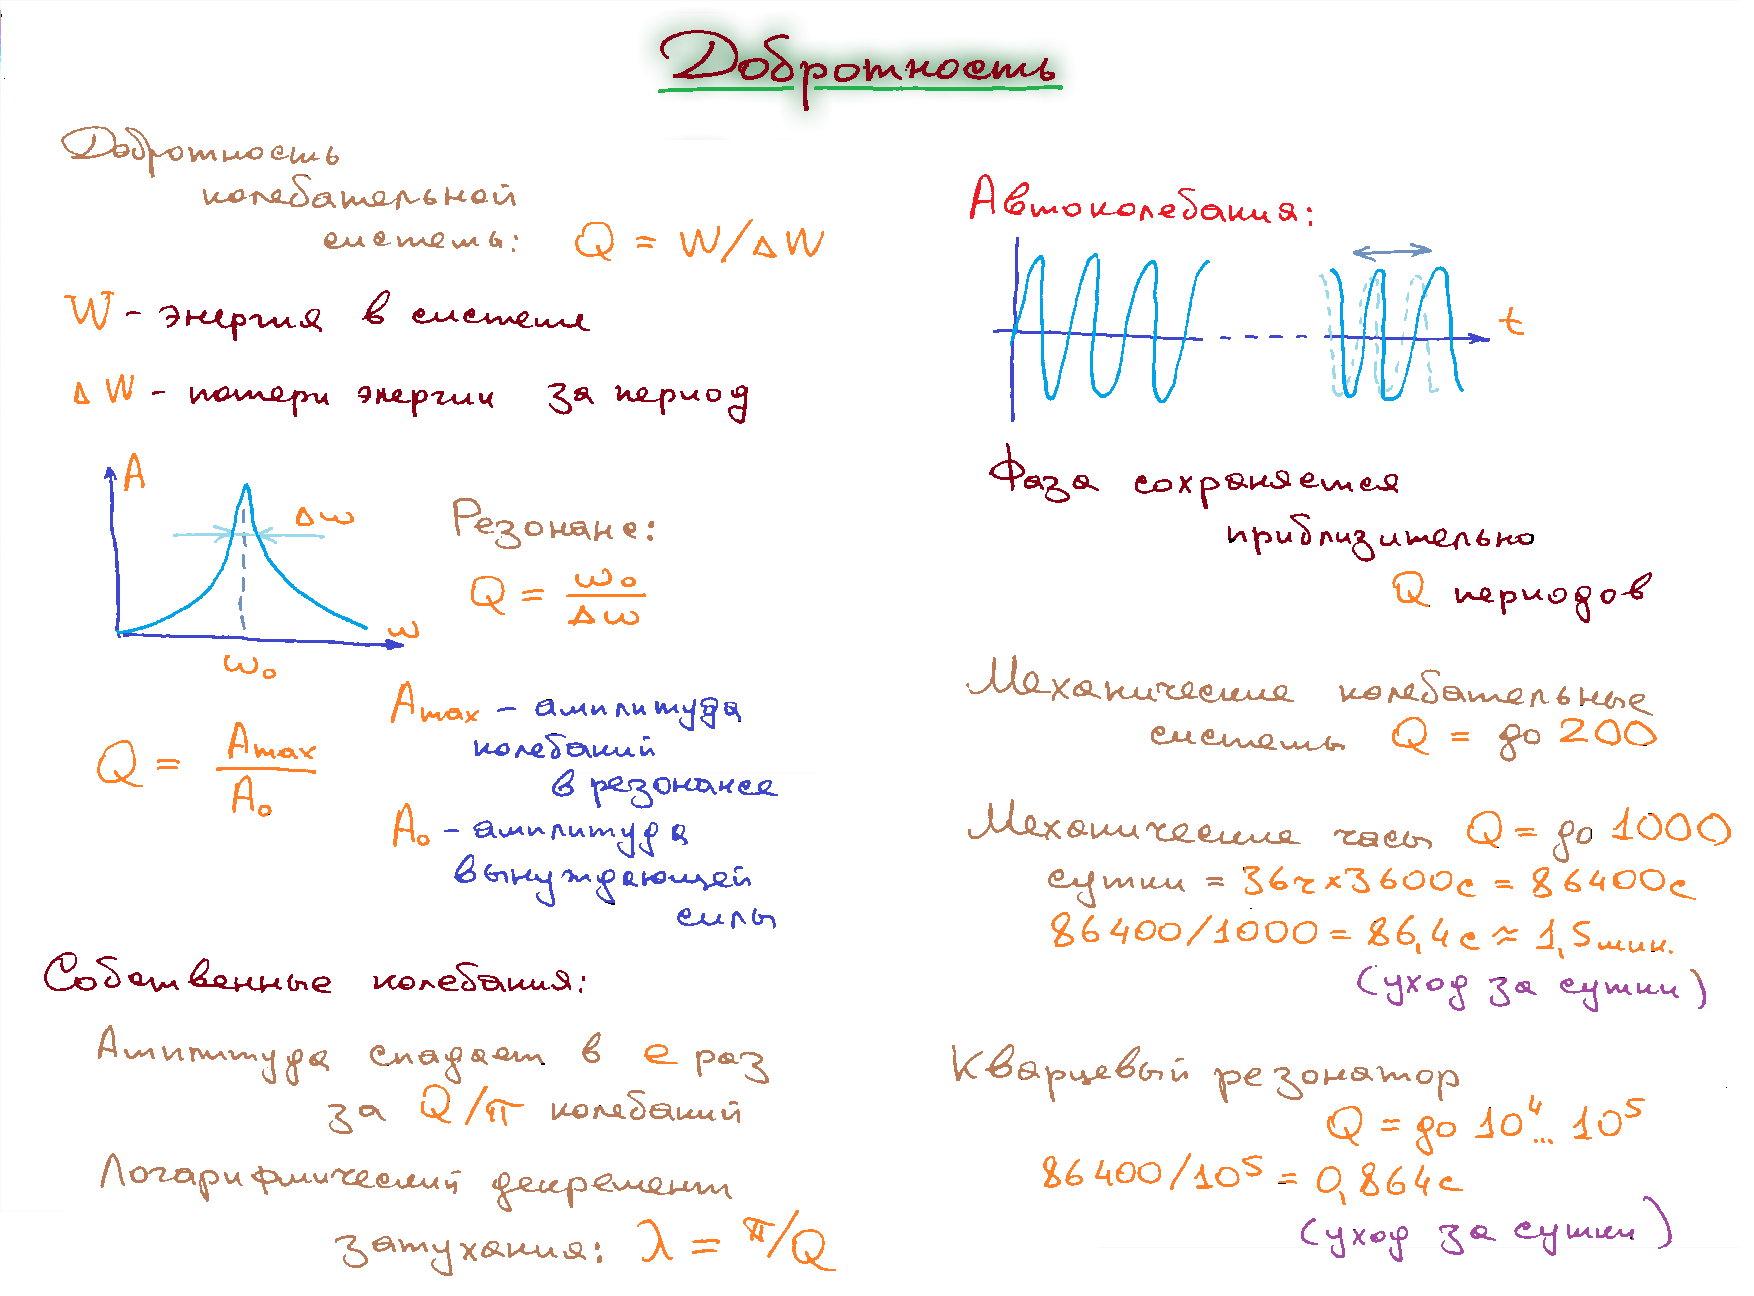 Добротность
Добротность
колебательной
системы: Q = W/ΔW
W - энергия в системе
ΔW - потери энергии за период
A
Δω
ω
ω₀
Резонанс:
Q = ω₀/Δω
Q = Amax/A₀
Amax - амплитуда
колебаний
в резонансе
A₀ - амплитуда
вынуждающей
силы
Собственные колебания:
Амплитуда спадает в e раз
за Q/π колебаний
Логарифмический декремент
затухания: λ = π/Q
Автоколебания:
t
Фаза сохраняется
приблизительно
Q периодов
Механические колебательные
системы Q = до 200
Механические часы Q = до 1000
сутки = 36ч×3600с = 86400с
86400/1000 = 86,4с ≈ 1,5мин.
(уход за сутки)
Кварцевый резонатор
Q = до 10⁴... 10⁵
86400/10⁵ = 0,864с
(уход за сутки)